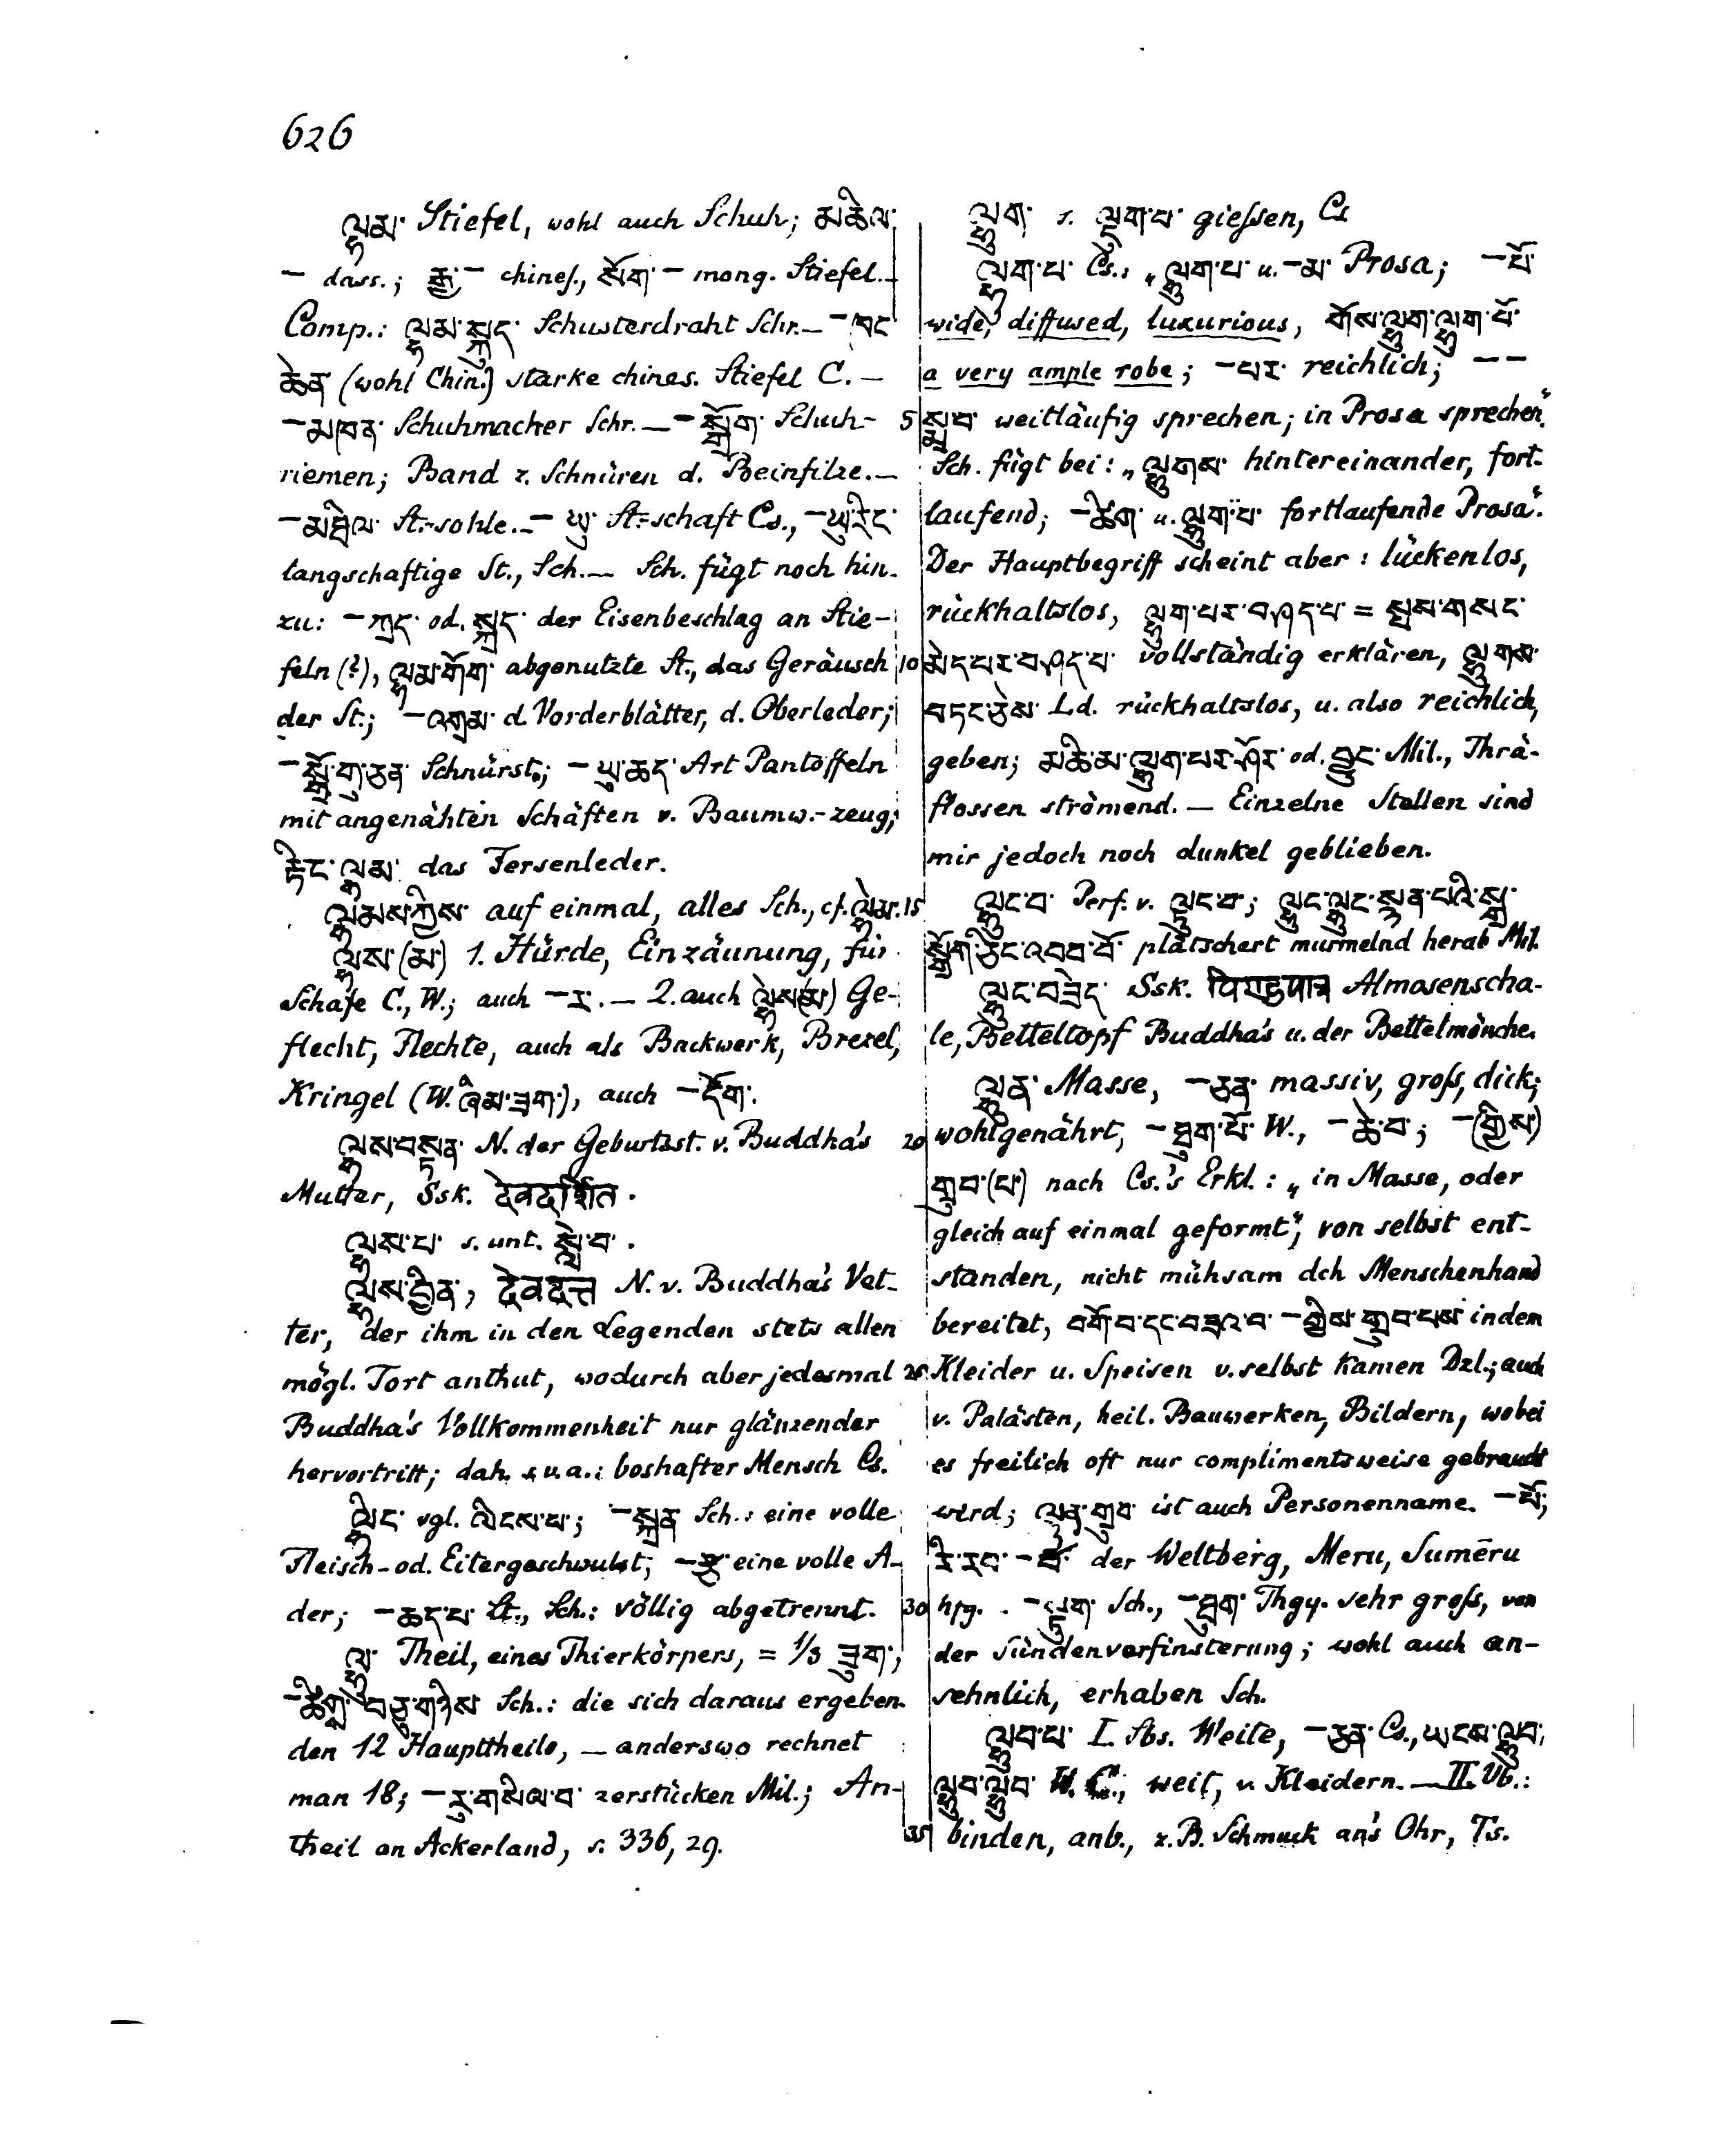 626
ལྷམ་ Stiefel, wohl auch Schuh; མཆིལ་
— dass.; རྒྱ་ — chines., སོག་ — mong. Stiefel. —
Comp.: ལྷམ་སྐུད་ Schusterdraht Schr. — —ཁང་
ཆེན་ (wohl Chin.) starke chines. Stiefel C. —
—མཁན་ Schuhmacher Schr. — —སྒྲོག་ Schuh-
riemen; Band z. Schnüren d. Beinfilze. —
—མཐིལ་ St.-sohle. — —ཡུ་ St.-schaft Cs., —ཡུ་རིང་
langschaftige St., Sch. — Sch. fügt noch hin-
zu: —ཀྲད་ od. སྐྲད་ der Eisenbeschlag an Stie-
feln (?), ལྷམ་གོག་ abgenutzte St., das Geräusch
der St.; —འགྲམ་ d. Vorderblätter, d. Oberleder;
—སྒྲོ་གུ་ཅན་ Schnürst.; —ཡུ་ཆད་ Art Pantoffeln
mit angenähten Schäften v. Baumw.-zeug;
རྟིང་ལྷམ་ das Fersenleder.
ལྷམས་ཀྱིས་ auf einmal, alles Sch., cf. ལྷེམ་
ལྷས་(མ་) 1. Hürde, Einzäunung, für
Schafe C., W.; auch —ར་. — 2. auch ལྷེས་(མ་) Ge-
flecht, Flechte, auch als Backwerk, Brezel,
Kringel (W. ཞིམ་ཟག་), auch —དོག་.
ལྷས་བསྟན་ N. der Geburtsst. v. Buddha's
Mutter, Ssk. देवदर्शित.
ལྷས་པ་ s. unt. སླེ་བ་.
ལྷས་བྱིན་, देवदत्त N. v. Buddha's Vet-
ter, der ihm in den Legenden stets allen
mögl. Tort anthut, wodurch aber jedesmal
Buddha's Vollkommenheit nur glänzender
hervortritt; dah. s. v. a.: boshafter Mensch Cs.
ལྷིང་ vgl. ལིངས་པ་; —སྐྲན་ Sch.: eine volle
Fleisch- od. Eitergeschwulst; —རྩ་ eine volle A-
der; —ཆད་པ་ Lt., Sch.: völlig abgetrennt.
ལྷུ་ Theil, eines Thierkörpers, = 1/3 ཟུག་;
—ཚིགས་བཅུ་གཉིས་ Sch.: die sich daraus ergeben-
den 12 Haupttheile, — anderswo rechnet
man 18; —རུ་གསིལ་བ་ zerstücken Mil.; An-
theil an Ackerland, s. 336, 29.
ལྷུག་ s. ལྡུག་པ་ giessen, Cs
ལྷུག་པ་ Cs.: „ལྷུག་པ་ u. —མ་ Prosa; —པོ་
wide, diffused, luxurious, གོས་ལྷུག་ལྷུག་པོ་
a very ample robe; —པར་ reichlich; — —
5 སྨྲ་བ་ weitläufig sprechen; in Prosa sprechen“.
Sch. fügt bei: „ལྷུགས་ hintereinander, fort-
laufend; —ཚིག་ u. ལྷུག་པ་ fortlaufende Prosa“.
Der Hauptbegriff scheint aber: lückenlos,
rückhaltslos, ལྷུག་པར་བཤད་པ་ = སྤས་གསང་
10 མེད་པར་བཤད་པ་ vollständig erklären, ལྷུགས་
བཏང་ཅེས་ Ld. rückhaltslos, u. also reichlich,
geben; མཆི་མ་ལྷུག་པར་ཤོར་ od. བྱུང་ Mil., Thrä-
flossen strömend. — Einzelne Stellen sind
mir jedoch noch dunkel geblieben.
15 ལྷུང་བ་ Perf. v. ལྟུང་བ་; ལྷུང་ལྷུང་སྙན་པའི་སྒྲ་
སྒྲོག་ཅིང་འབབ་བོ་ plätschert murmelnd herab Mil.
ལྷུང་བཟེད་ Ssk. पिण्डपात्र Almosenscha-
le, Betteltopf Buddha's u. der Bettelmönche.
ལྷུན་ Masse, —ཅན་ massiv, gross, dick;
20 wohlgenährt, —ཐུག་པོ་ W., —ཆེ་བ་; —(གྱིས་)
གྲུབ་(པ་) nach Cs.'s Erkl.: „in Masse, oder
gleich auf einmal geformt“, von selbst ent-
standen, nicht mühsam dch Menschenhand
bereitet, བགོ་བ་དང་བཟའ་བ་ —གྱིས་གྲུབ་པས་ indem
25 Kleider u. Speisen v. selbst kamen Dzl.; auch
v. Palästen, heil. Bauwerken, Bildern, wobei
es freilich oft nur complimentsweise gebraucht
wird; ལྷུན་གྲུབ་ ist auch Personenname. —པོ་;
རི་རབ་ —པོ་ der Weltberg, Meru, Sumēru
30 hfg. — —སྟུག་ Sch., —ཐུག་ Thgy. sehr gross, von
der Sündenverfinsterung; wohl auch an-
sehnlich, erhaben Sch.
ལྷུབ་པ་ I. sbs. Weite, —ཅན་ Cs., ཡངས་ལྷུབ་,
ལྷུབ་ལྷུབ་ W. C., weit, v. Kleidern. — II. Vb.:
35 binden, anb., z. B. Schmuck an's Ohr, Ts.